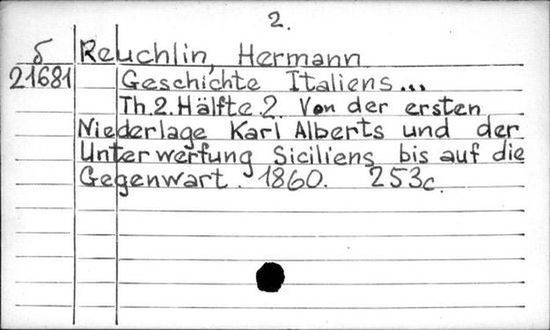 2.
б Reuchlin, Hermann
21681 Geschichte Italiens...
Th.2. Hälfte 2. Von der ersten
Niederlage Karl Alberts und der
Unterwerfung Siciliens bis auf die
Gegenwart. 1860. 253c.